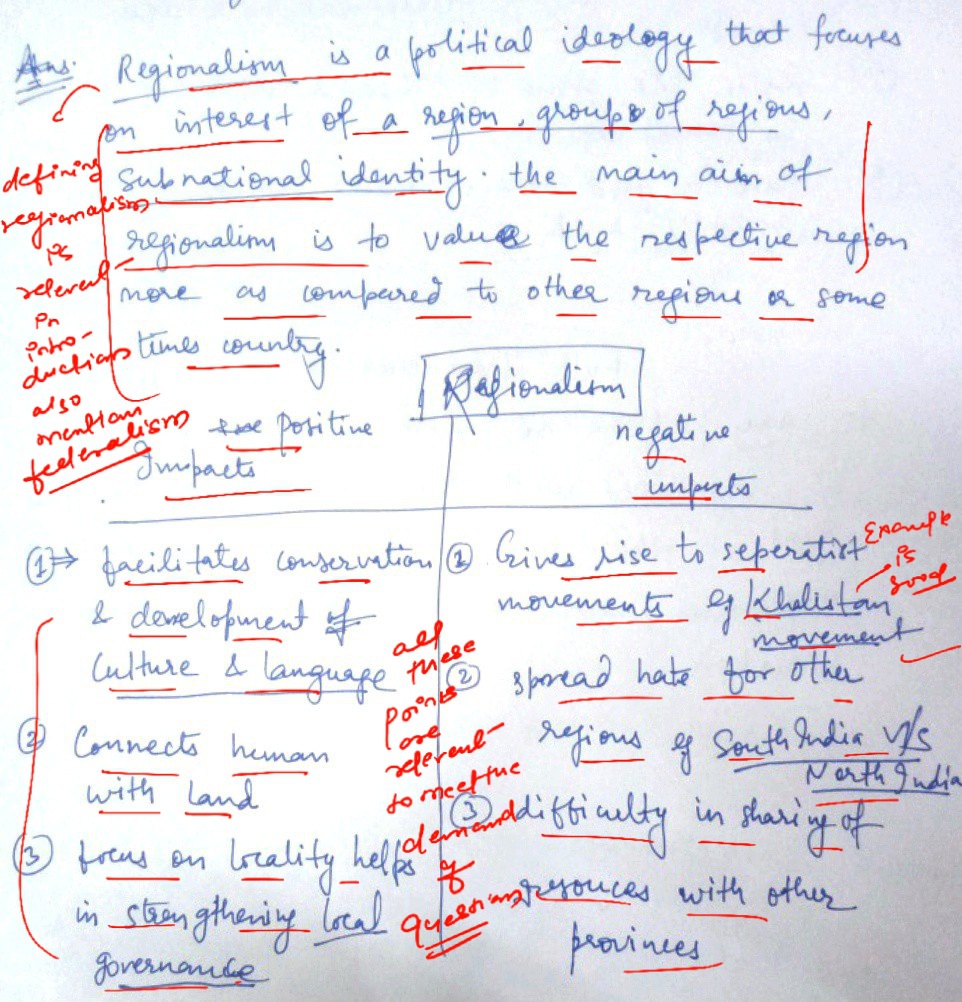 Ans. Regionalism is a political ideology that focuses
on interest of a region, groups of regions,
subnational identity. the main aim of
regionalism is to value the respective region
more as compared to other regions or some
times country.
defining
regionalism
is
relevent
in
intro-
ductions
also
mention
federalism
Regionalism
Positive
Impacts
negative
impacts
① ⇒ facilitates conservation
& development of
Culture & language
② Connects human
with Land
③ focus on locality helps
in strengthening local
governance
all
these
points
are
relevent
to meet the
demand
of
Question
① Gives rise to seperatist
movements eg Khalistan
movement
Example
is
good
② spread hate for other
regions eg South India v/s
North India
③ difficulty in sharing of
resouces with other
provinces